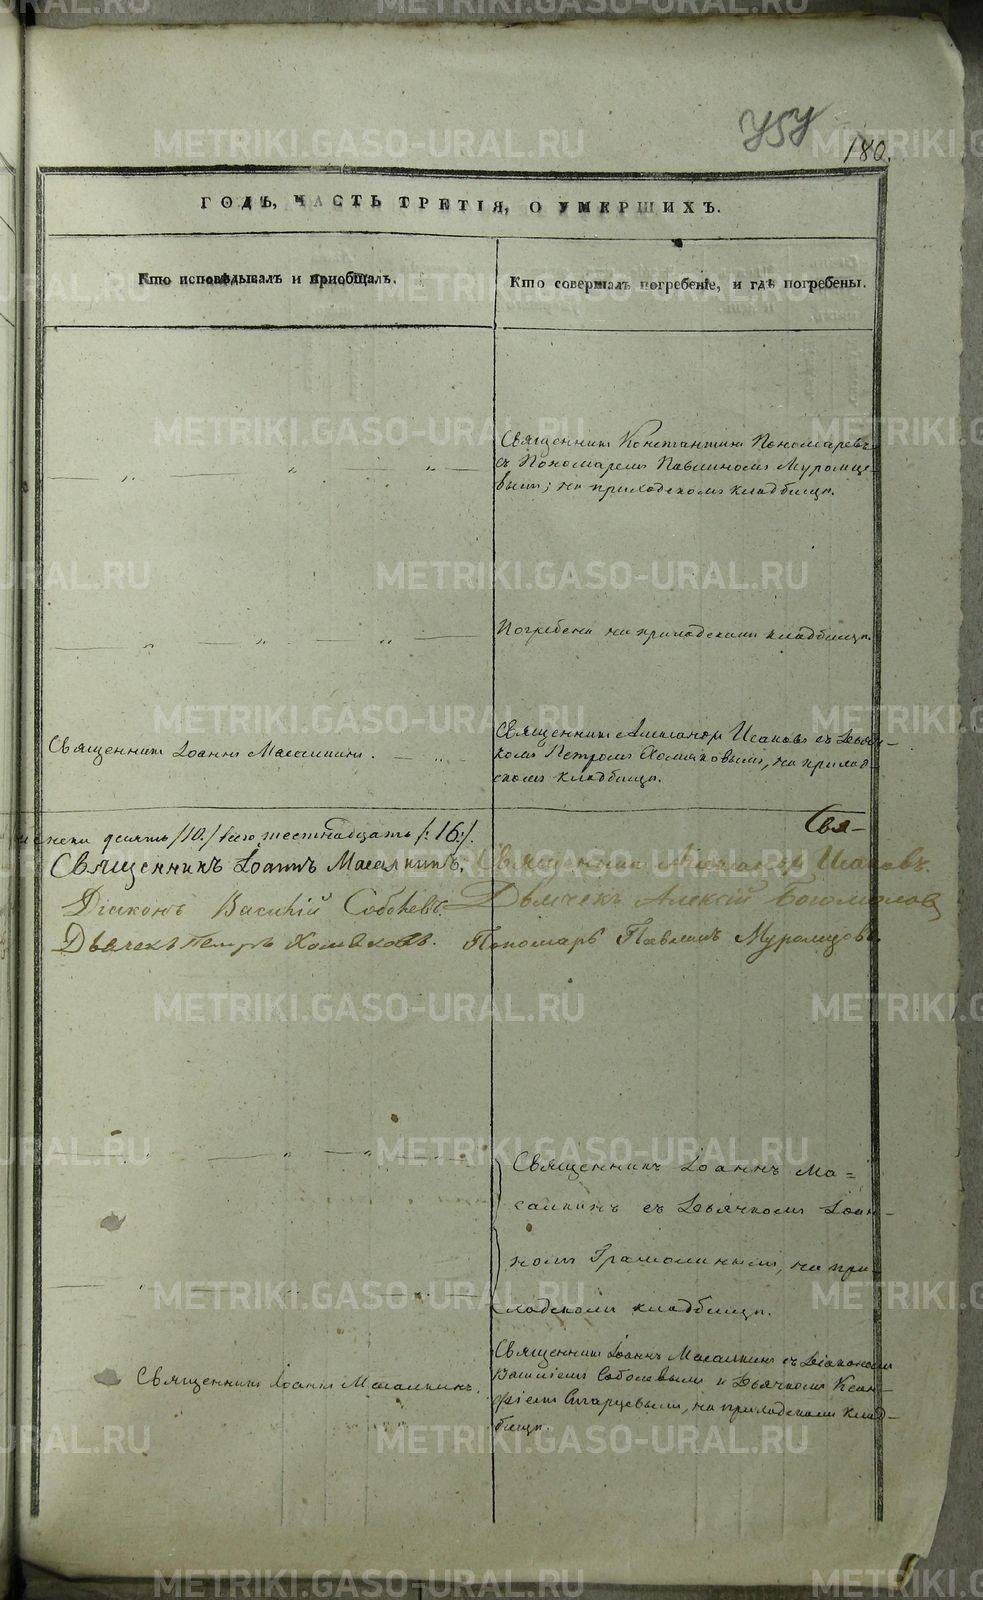 180.
ГОДЪ, ЧАСТЬ ТРЕТІЯ, О УМЕРШИХЪ.
Кто исповѣдывалъ и пріобщалъ.
Кто совершалъ погребеніе, и гдѣ погребены.
Священникъ Константинъ Пономаревъ
съ Пономаремъ Павлиномъ Муромце-
вымъ; на приходскомъ кладбищѣ.
Погребенъ на приходскомъ кладбищѣ.
Священникъ Іоаннъ Масалкинъ.
Священникъ Александръ Исаковъ съ Дьяч-
комъ Петромъ Хомяковымъ, на приход-
скомъ кладбищѣ.
десять /10./ всего шестнадцать /:16:/.
Свя-
Священникъ Іоаннъ Масалкинъ.
Священникъ Александръ Исаковъ.
Діаконъ Василій Соболевъ.
Дьячекъ Алексій Богомолов
Дьячекъ Петръ Хомяковъ.
Пономарь Павлинъ Муромцовъ.
Священникъ Іоаннъ Ма=
салкинъ съ Дьячкомъ Іоан-
номъ на при-
ходскомъ кладбищѣ.
Священникъ Іоаннъ Масалкинъ.
Священникъ Іоаннъ Масалкинъ съ Діакономъ
Василіемъ Соболевымъ и Дьячкомъ Ксен-
фіемъ Старцевымъ, на приходскомъ клад-
бищѣ.
METRIKI.GASO-URAL.RU